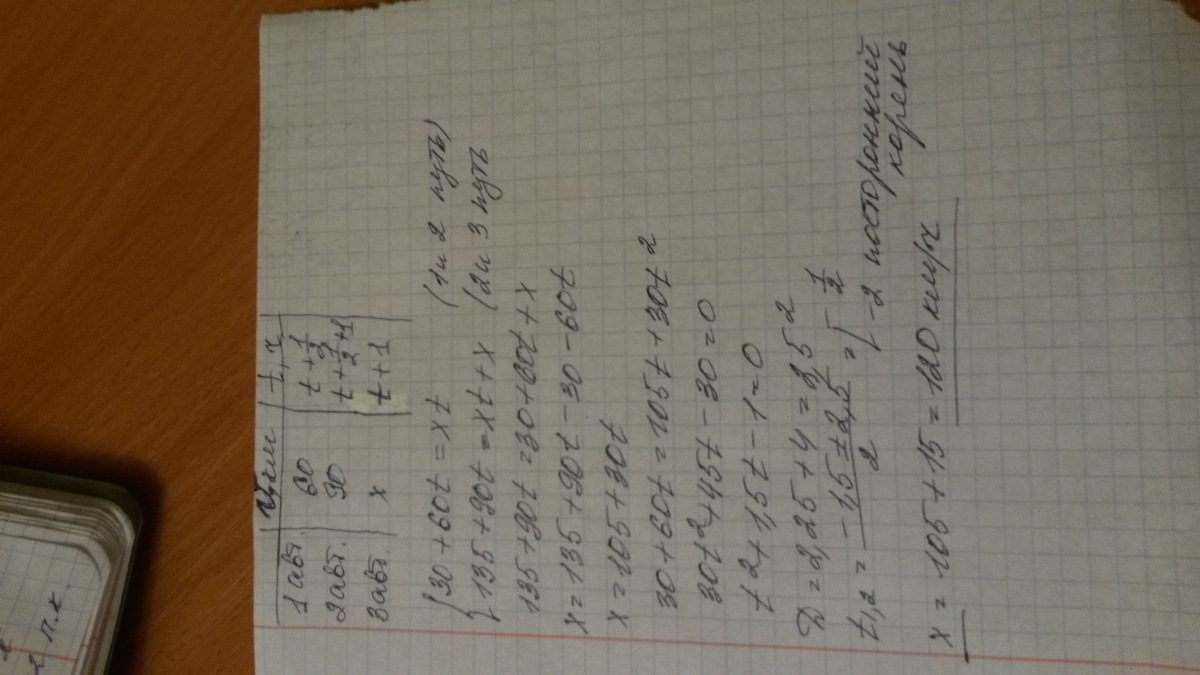 V, км t, ч
1 авт. 60 t + 1/2
2 авт. 90 t + 1/2 + 1
3 авт. x t + 1
{ 30 + 60t = xt (1 и 2 путь)
{ 135 + 90t = xt + x (2 и 3 путь
135 + 90t = 30 + 60t + x
x = 135 + 90t - 30 - 60t
x = 105 + 30t
30 + 60t = 105t + 30t²
30t² + 45t - 30 = 0
t2 + 1,5t - 1 = 0
D = 2,25 + 4 = 2,5²
t1,2 = (-1,5 ± 2,5)/2 = [ 1/2
-2 посторонний
корень
x = 105 + 15 = 120 км/ч
2 п.к.